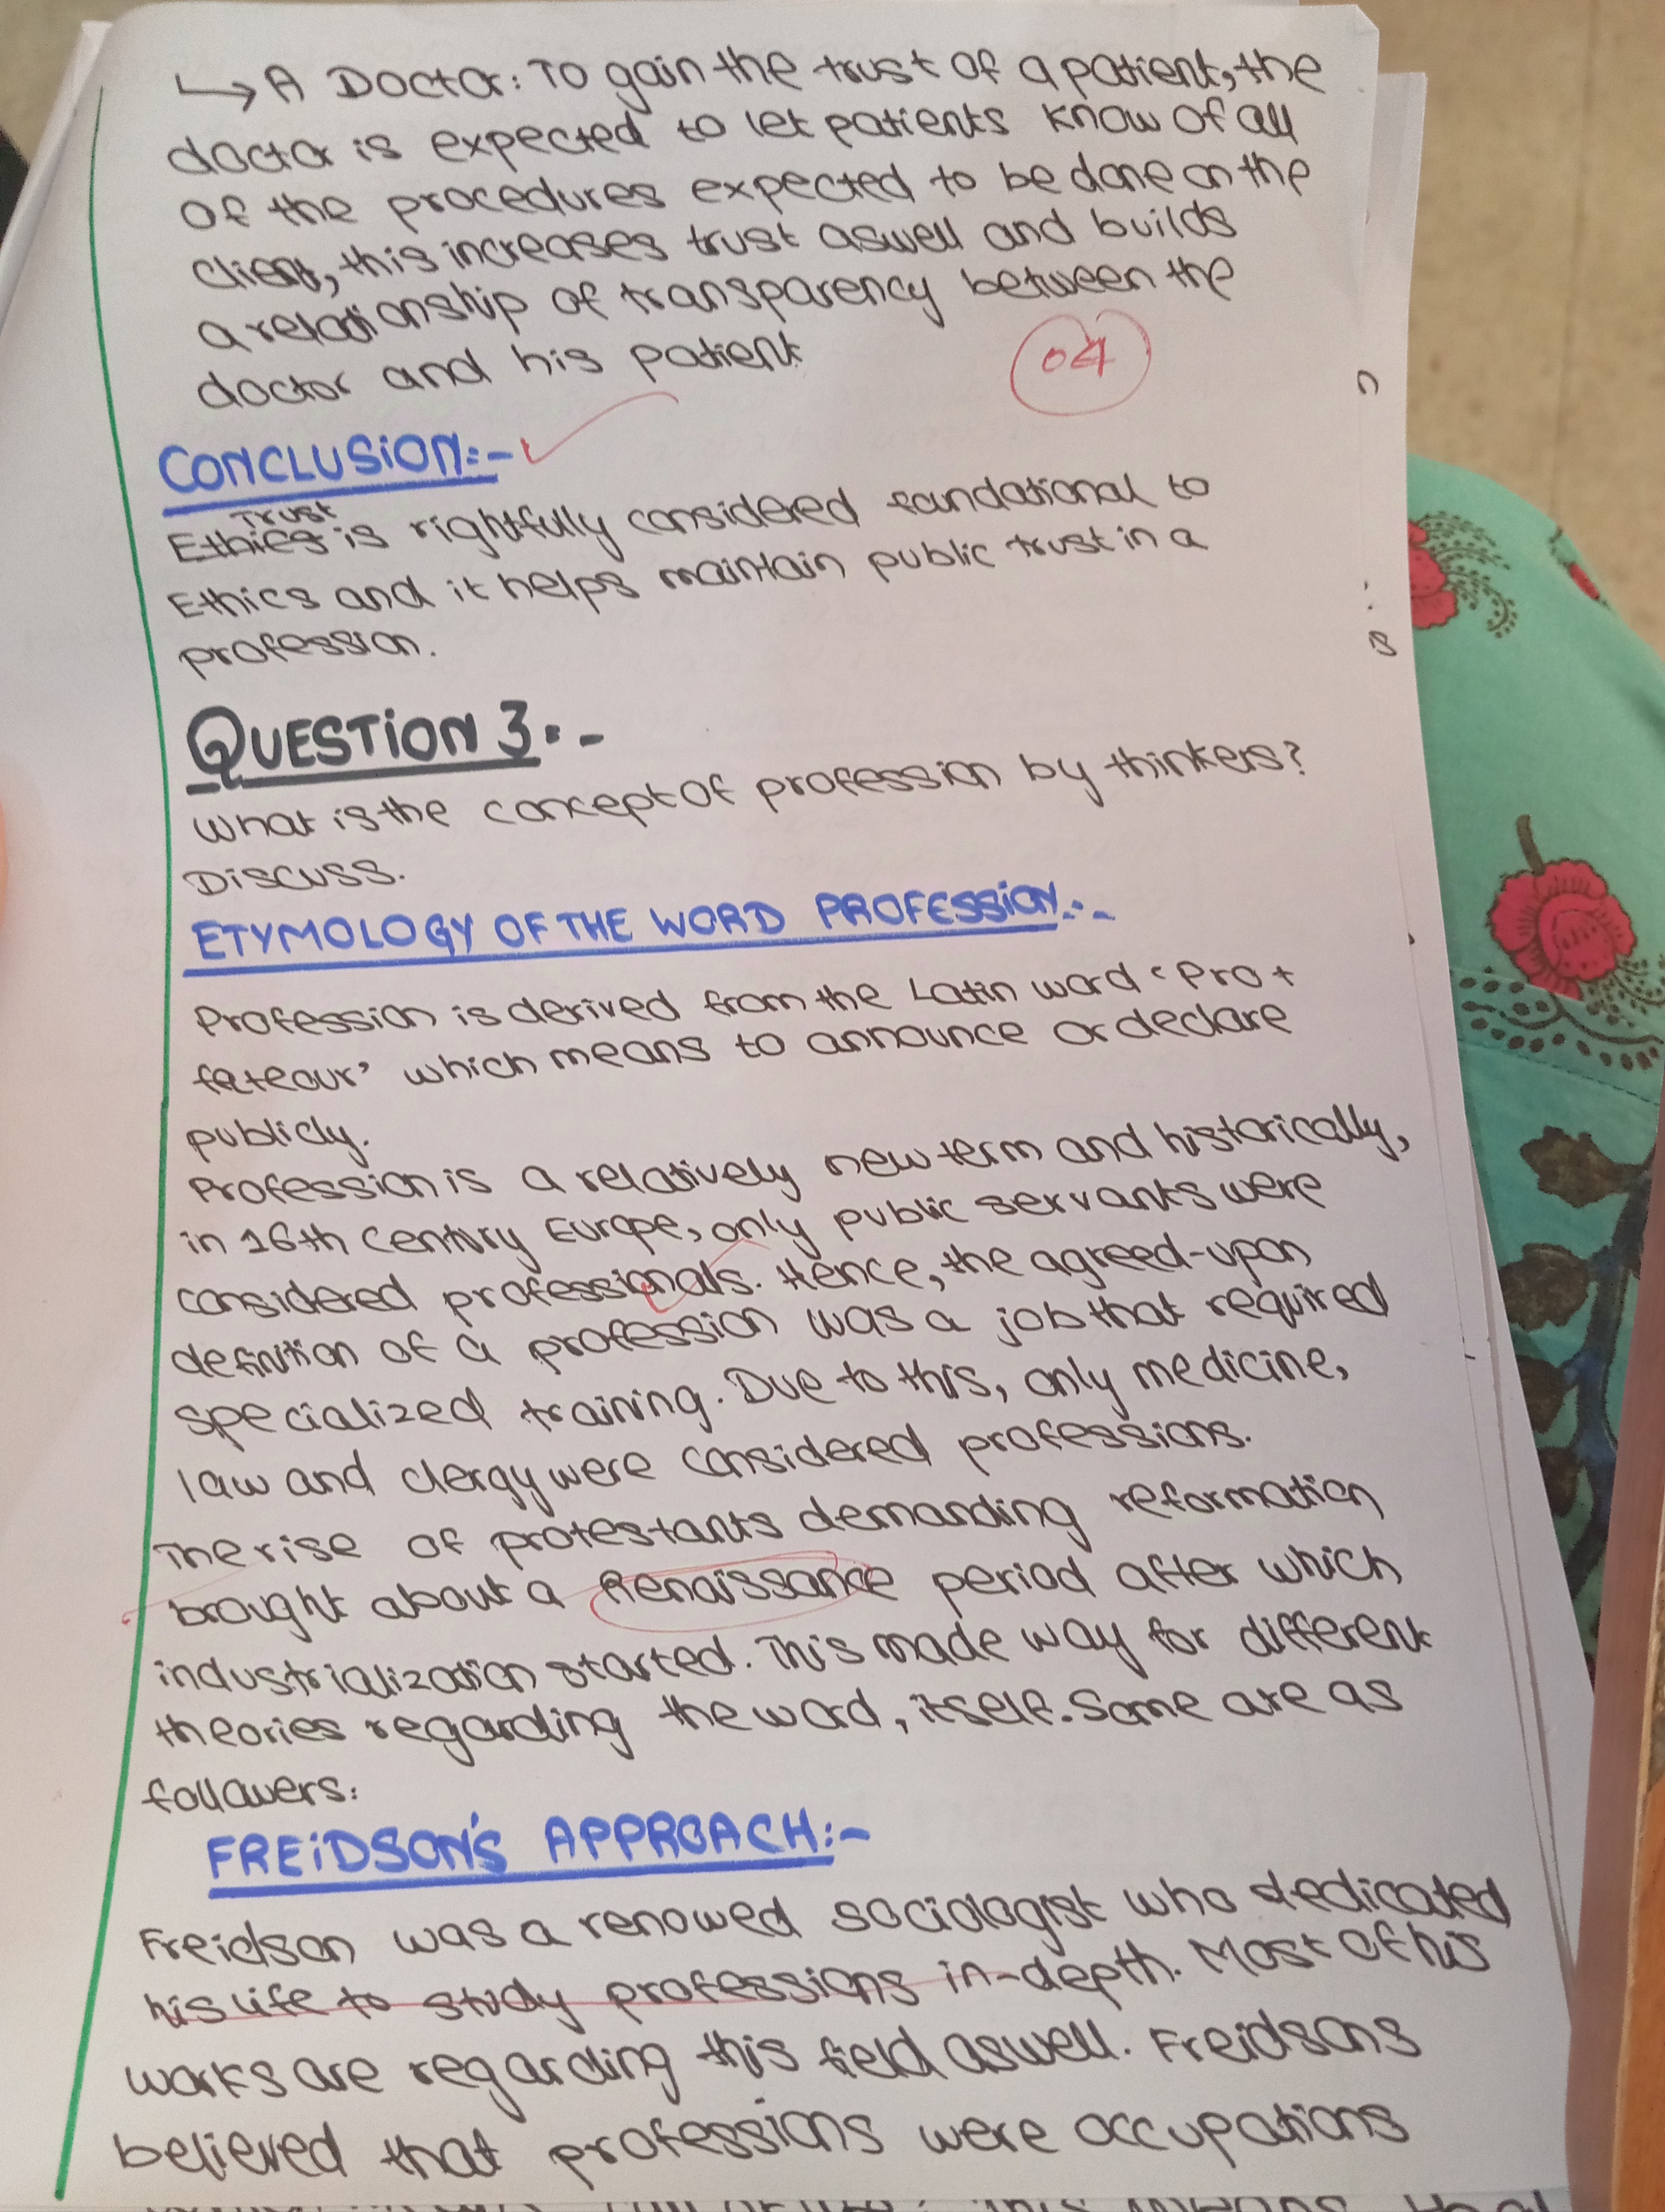 ↳ A Doctor: To gain the trust of a patient, the
doctor is expected to let patients know of all
of the procedures expected to be done on the
client, this increases trust aswell and builds
a relationship of transparency between the
doctor and his patient
04
CONCLUSION:-
Trust
Ethics is rightfully considered foundational to
Ethics and it helps maintain public trust in a
profession.
QUESTION 3:-
What is the concept of profession by thinkers?
Discuss.
ETYMOLOGY OF THE WORD PROFESSION:-
Profession is derived from the Latin word 'Pro +
fateour' which means to announce or declare
publicly.
Profession is a relatively new term and historically,
in 16th Century Europe, only public servants were
considered professionals. Hence, the agreed-upon
definition of a profession was a job that required
specialized training. Due to this, only medicine,
law and clergy were considered professions.
The rise of protestants demanding reformation
brought about a Renaissance period after which
industrialization started. This made way for different
theories regarding the word, itself. Some are as
followers:
FREIDSON'S APPROACH:-
Freidson was a renowed sociologist who dedicated
his life to study professions in-depth. Most of his
works are regarding this field aswell. Freidsons
believed that professions were occupations